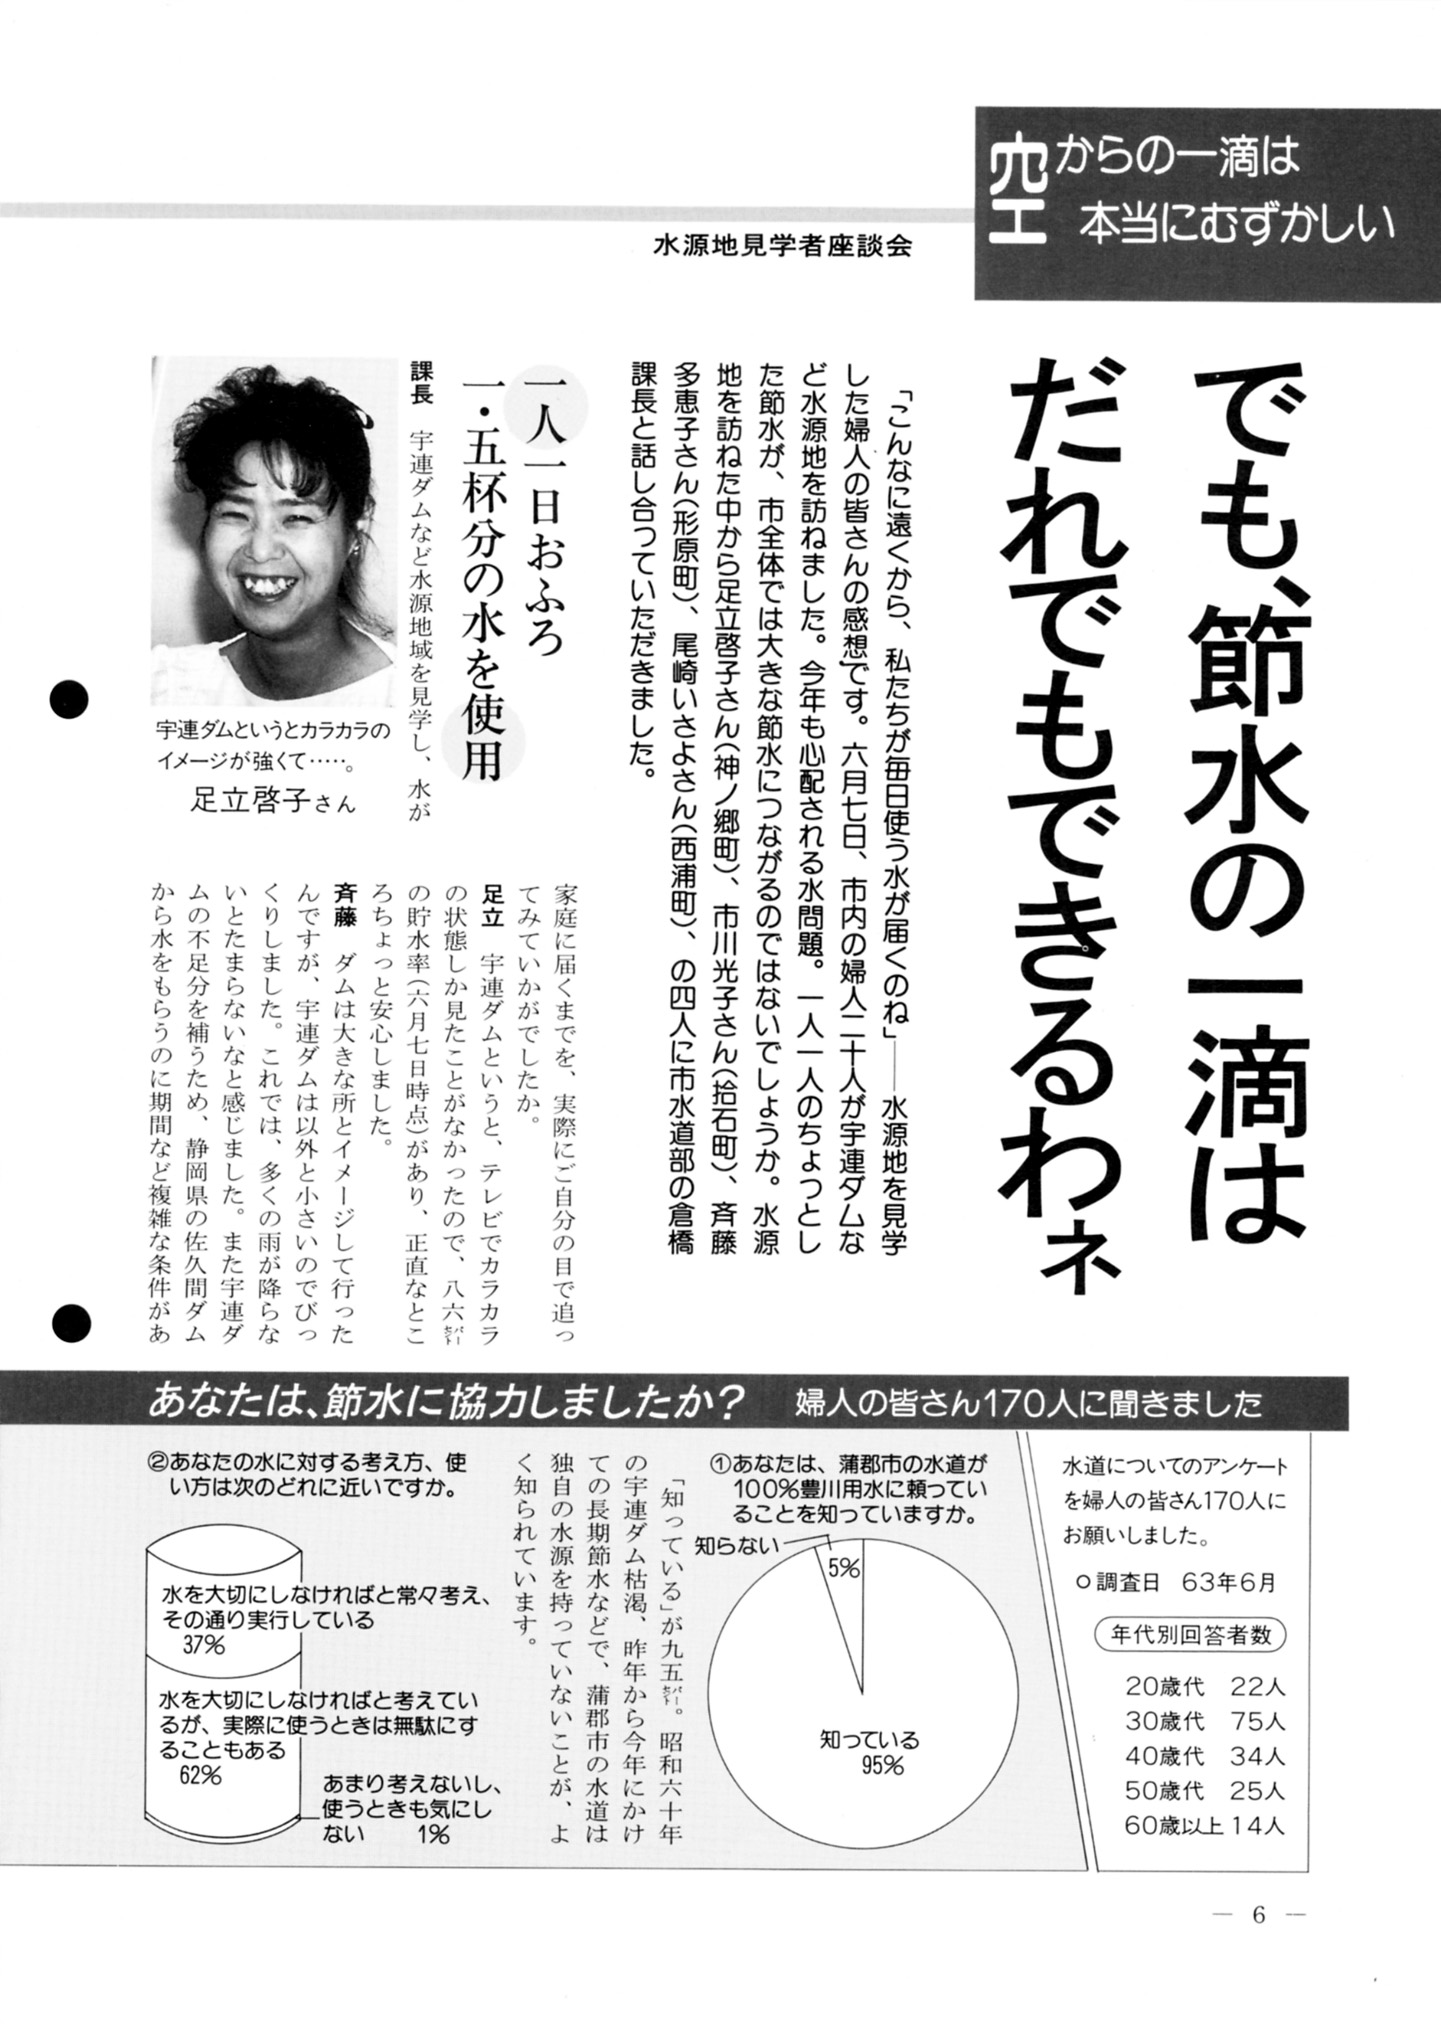 空からの一滴は
本当にむずかしい
水源地見学者座談会
でも、節水の一滴は
だれでもできるわネ
「こんなに遠くから、私たちが毎日使う水が届くのね」――水源地を見学
した婦人の皆さんの感想です。六月七日、市内の婦人二十人が宇連ダムな
ど水源地を訪ねました。今年も心配される水問題。一人一人のちょっとし
た節水が、市全体では大きな節水につながるのではないでしょうか。水源
地を訪ねた中から足立啓子さん(神ノ郷町)、市川光子さん(拾石町)、斉藤
多恵子さん(形原町)、尾崎いさよさん(西浦町)、の四人に市水道部の倉橋
課長と話し合っていただきました。
一人一日おふろ
一・五杯分の水を使用
課長 宇連ダムなど水源地域を見学し、水が
宇連ダムというとカラカラの
イメージが強くて……。
足立啓子さん
家庭に届くまでを、実際にご自分の目で追っ
てみていかがでしたか。
足立 宇連ダムというと、テレビでカラカラ
の状態しか見たことがなかったので、八六パーセント
の貯水率(六月七日時点)があり、正直なとこ
ろちょっと安心しました。
斉藤 ダムは大きな所とイメージして行った
んですが、宇連ダムは以外と小さいのでびっ
くりしました。これでは、多くの雨が降らな
いとたまらないなと感じました。また宇連ダ
ムの不足分を補うため、静岡県の佐久間ダム
から水をもらうのに期間など複雑な条件があ
あなたは、節水に協力しましたか? 婦人の皆さん170人に聞きました
水道についてのアンケート
を婦人の皆さん170人に
お願いしました。
○調査日 63年6月
年代別回答者数
20歳代 22人
30歳代 75人
40歳代 34人
50歳代 25人
60歳以上14人
①あなたは、蒲郡市の水道が
100%豊川用水に頼ってい
ることを知っていますか。
知らない
5%
知っている
95%
「知っている」が九五パーセント。昭和六十年
の宇連ダム枯渇、昨年から今年にかけ
ての長期節水などで、蒲郡市の水道は
独自の水源を持っていないことが、よ
く知られています。
②あなたの水に対する考え方、使
い方は次のどれに近いですか。
水を大切にしなければと常々考え、
その通り実行している
37%
水を大切にしなければと考えてい
るが、実際に使うときは無駄にす
ることもある
62%
あまり考えないし、
使うときも気にし
ない 1%
— 6 —